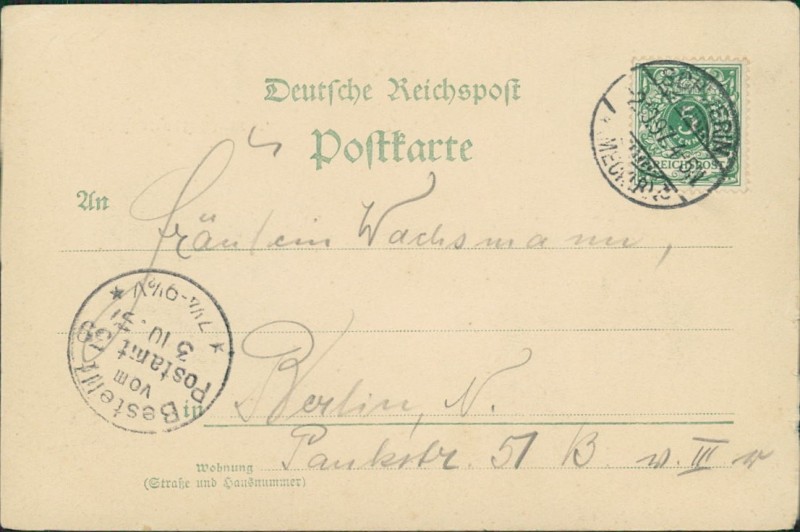 Deutsche Reichspost
Postkarte
An Fräulein Wachsmann,
in Berlin, N.
Wohnung
(Straße und Hausnummer)
Pankstr. 51 B. v. III r
SCHWERIN
MECKLBG
5
REICHSPOST
Bestellt
vom
Postamt 39
3 10
7¼-9¼V